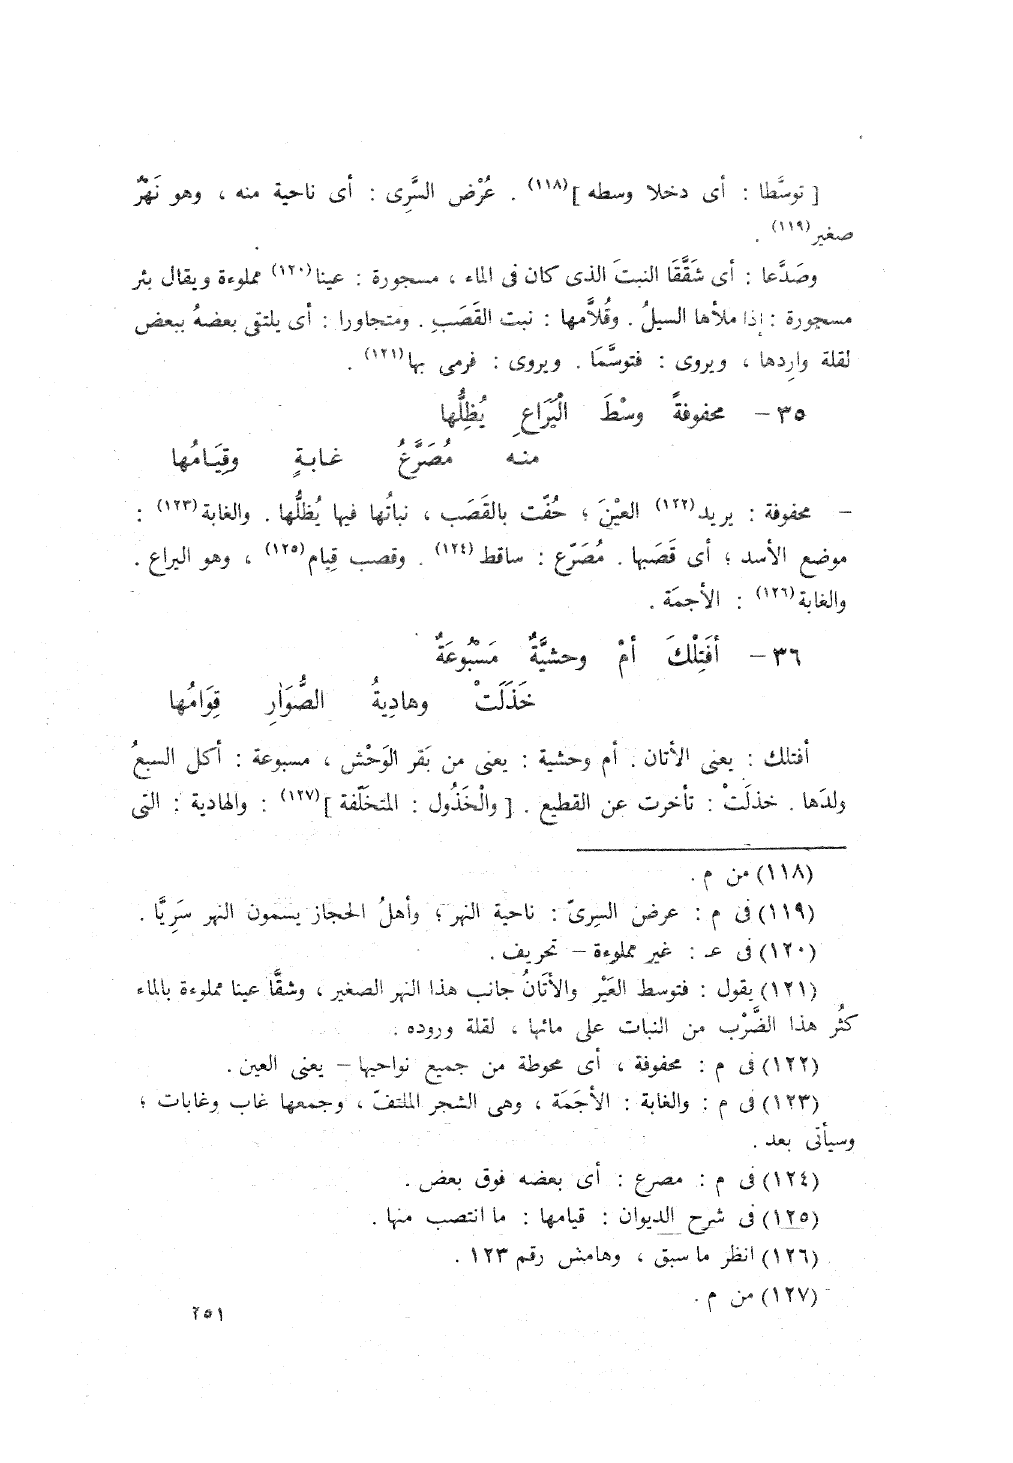 [ توسَّطا : أى دخلا وسطه ](١١٨) . عُرْض السَّرِى : أى ناحية منه ، وهو نَهْرٌ
صغير(١١٩) .
وصَدَّعا : أى شَقَّقَا النبتَ الذى كان فى الماء ، مسجورة : عينا(١٢٠) مملوءة ويقال بئر
مسجورة : إذا ملأها السيلُ . وقُلاَّمها : نبت القَصَب . ومتجاورا : أى يلتقى بعضهُ ببعض
لقلة وارِدها ، ويروى : فتوسَّمَا . ويروى : فرمى بها(١٢١) .
٣٥ – محفوفةً وسْطَ الْيَرَاعِ يُظِلُّها
منه مُصَرَّعُ غابةٍ وقِيَامُها
– محفوفة : يريد(١٢٢) العيْنَ ؛ حُفّت بالقَصَب ، نباتُها فيها يُظلُّها . والغابة(١٢٣) :
موضع الأسد ؛ أى قَصَبها . مُصَرّع : ساقط(١٢٤) . وقصب قِيام(١٢٥) ، وهو اليراع .
والغابة(١٢٦) : الأجمَة .
٣٦ – أفَتِلْكَ أمْ وحشيَّةٌ مَسْبُوعَةٌ
خَذَلَتْ وهادِيةُ الصُّوَارِ قِوَامُها
أفتلك : يعنى الأتان . أم وحشية : يعنى من بَقر الوَحْش ، مسبوعة : أكل السبعُ
ولدَها . خذلَتْ : تأخرت عن القطيع . [ والْخَذُول : المتخَلّفة ](١٢٧) : والهادية : التى
(١١٨) من م .
(١١٩) فى م : عرض السِرىّ : ناحية النهر ؛ وأهلُ الحجاز يسمون النهر سَرِيًّا .
(١٢٠) فى عـ : غير مملوءة – تحريف .
(١٢١) يقول : فتوسط العَيْر والأتَانُ جانب هذا النهر الصغير ، وشقَّا عينا مملوءة بالماء
كثُر هذا الضَّرْب من النبات على مائها ، لقلة وروده .
(١٢٢) فى م : محفوفة ، أى محوطة من جميع نواحيها – يعنى العين .
(١٢٣) فى م : والغابة : الأجَمَة ، وهى الشجر الملتفّ ، وجمعها غاب وغابات ؛
وسيأتى بعد .
(١٢٤) فى م : مصرع : أى بعضه فوق بعض .
(١٢٥) فى شرح الديوان : قيامها : ما انتصب منها .
(١٢٦) انظر ما سبق ، وهامش رقم ١٢٣ .
(١٢٧) من م .
٢٥١